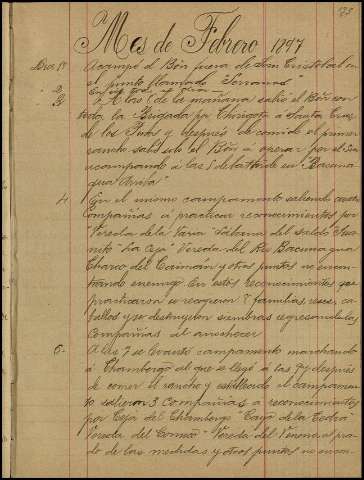 Mes de Febrero 1897
Dia 1º Acampó el Bón fuera de San Cristobal en
el punto llamado "Serranos"
" 2
" 3 A las 6 de la mañana salió el Bón con
toda la Brigada por Chirigota á Santa Cruz
de los Pinos y despues de comido el primer
rancho salió solo el Bón á operar por el
acampando á las 5 de la tarde en Bacuna
gua Arriba"
4 En el mismo campamento saliendo cuatro
Compañias á practicar reconocimientos por
Vereda de la Sabana del
"La Ceja" Vereda del Rio Bacunagua
Charco del Caimán y otros puntos no encon
trando enemigo. En estos reconocimientos que
practicaron se recogieron 7 familias reses, ca
ballos y se destruyeron siembras regresando las
Compañias al anochecer
5 A las 7 se levantó campamento marchando
á Chambergo al que se llegó á las 9 y despues
de comer el rancho y establecido el campamen
to salieron 3 Compañias á reconocimientos
por Ceja del Chambergo "Cayo de la Cedra"
Vereda del Vereda del
de las medidas y otros puntos no encon